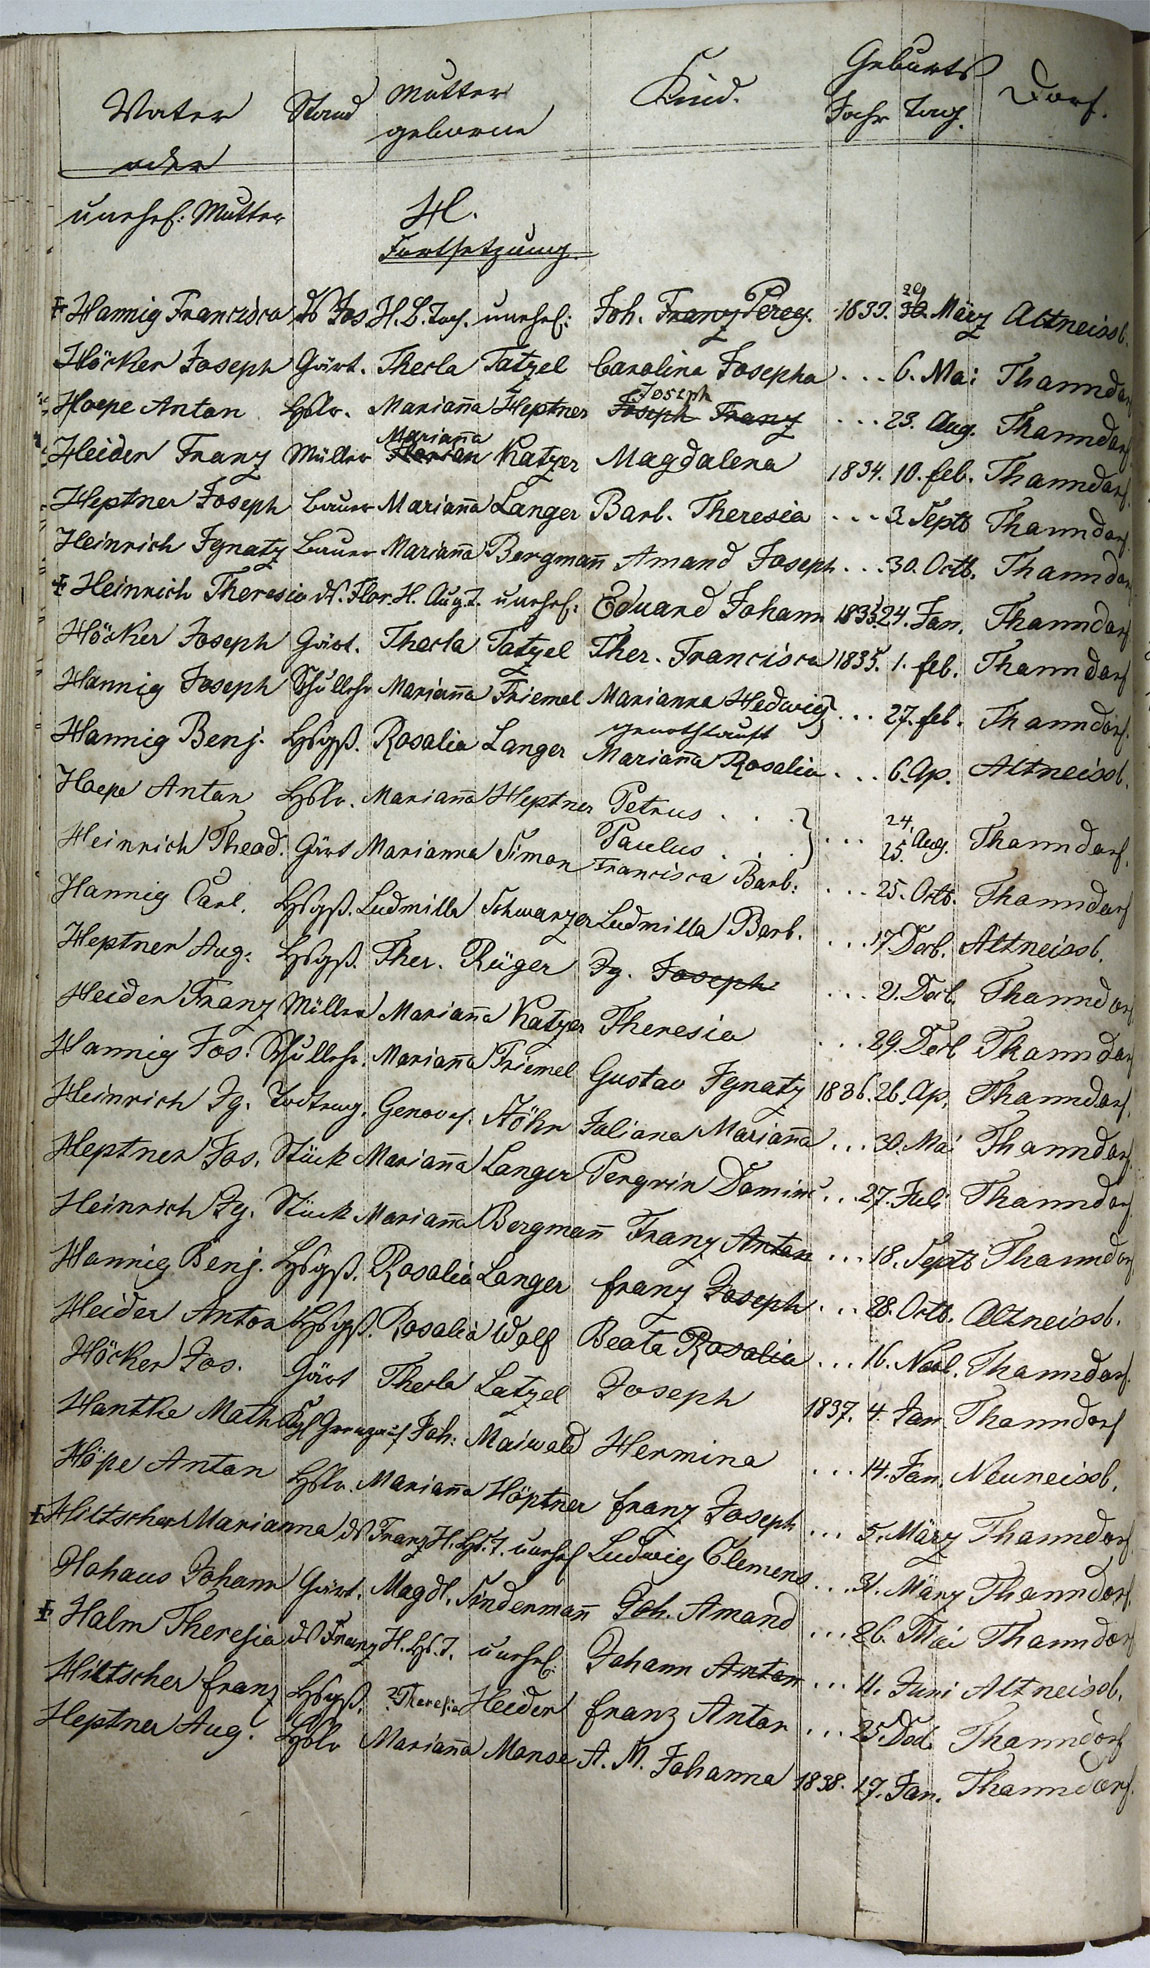 Vater Stand Mutter Kind. Geburts Dorf.
oder geborne Jahr Tag.
unehel: Mutter H.
Fortsetzung
Hannig Francisca ds Jos H. B. Toch. unehel: Joh. Franz Pereg. 1833. 30 29 März Altneissb.
Höcker Joseph Gärt. Thecla Tatzel Carolina Josepha ... 6. Mai Thanndorf
Hoepe Anton Hslr. Mariana Heptner Joseph Joseph Franz ... 23. Aug. Thanndorf
Heider Franz Müller Marianna Katzer Magdalena 1834. 10. feb. Thanndorf.
Heptner Joseph Bauer Mariana Langer Barb. Theresia ... 3. Septb Thanndorf.
Heinrich Ignatz Bauer Mariana Bergman Amand Joseph ... 30. Octb. Thanndorf
Heinrich Theresia ds. Flor. H. Aug. T. unehel. Eduard Johann 1835. 24. Jan. Thanndorf
Höcker Joseph Gärt. Thecla Tatzel Ther. Francisca 1835. 1. feb. Thanndorf
Hannig Joseph Schullehr Mariana Friemel Marianna Hedwig ... 27. feb. Thanndorf.
genothtauft
Hannig Benj. Hsgß. Rosalia Langer Mariana Rosalia ... 6. Ap. Altneissb.
Hoepe Anton Hslr. Mariana Heptner Petrus . . .
Paulus . . . } ... 24. 25. Aug. Thanndorf.
Heinrich Theod. Gärt Marianna Simon Francisca Barb. ... 25. Octb. Thanndorf
Hannig Carl. Hsgß. Ludmilla Schwarzer Ludmilla Barb. ... 17. Decb. Altneissb.
Heptner Aug. Hsgß. Ther. Rüger Ig. Joseph ... 21. Decb. Thanndorf
Heider Franz Müller Mariana Katzer Theresia ... 29. Decb Thanndorf
Hannig Jos. Schullehr. Mariana Friemel Gustav Ignatz 1836. 26. Ap. Thanndorf.
Heinrich Ig. Genovef. Stöhr Juliana Mariana ... 30. Mai Thanndorf.
Heptner Jos. Stück Mariana Langer Pergrin Domini ... 27. Juli Thanndorf
Heinrich Ig. Stück Mariana Bergman Franz Anton ... 18. Septb Thanndorf
Hannig Benj. Hsgß. Rosalia Langer franz Joseph ... 28. Octb. Altneissb.
Heider Anton Hsgß. Rosalia Wolf Beata Rosalia ... 16. Novb. Thanndorf.
Höcker Jos. Gärt Thecla Latzel Joseph 1837. 4. Jan. Thanndorf
Hantke Math Joh: Maiwald Hermina ... 14. Jan. Neuneissb.
Höpe Anton Hslr. Mariana Höptner franz Joseph ... 5. März Thanndorf.
Hiltscher Marianna ds Franz H. Hs. T. unehel Ludwig Clemens ... 31. März Thanndorf.
Hohaus Johann Gärt. Magdl. Sinderman Joh. Amand ... 26. Mai Thanndorf
Halm Theresia ds Franz H. Hs. T. unehel. Johann Anton ... 11. Juni Altneissb.
Hiltscher franz Hsgß. ? Theresia Heider franz Anton ... 25. Decb. Thanndorf
Heptner Aug. Hslr Mariana Manse A. M. Johanna 1838. 17. Jan. Thanndorf.